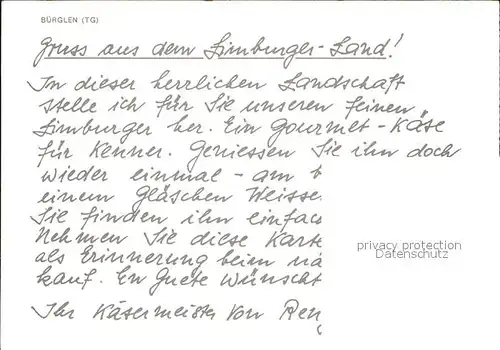 BÜRGLEN (TG)
Gruss aus dem Limburger-Land!
In dieser herrlichen Landschaft
stelle ich für Sie unseren feinen
Limburger her. Ein Gourmet-Käse
für Kenner. Geniessen Sie ihn doch
wieder einmal - am
einem Gläschen Weisse
Sie finden ihn einfac
Nehmen Sie diese Karte
als Erinnerung beim nä
kauf. En Guete wünscht
Ihr Käsermeister von Ren
privacy protection
Datenschutz